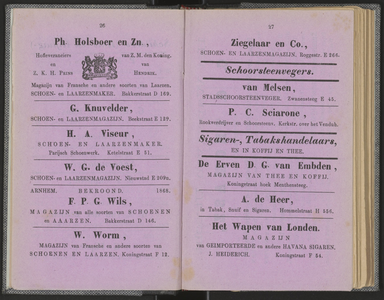 26
Ph. Holsboer en Zn.,
Hofleveranciers van Z. M. den Koning,
en van
Z. K. H. Prins HENDRIK.
Magazijn van Fransche en andere soorten van Laarzen,
SCHOEN- en LAARZENMAKER. Bakkerstraat D 169.
G. Knuvelder,
SCHOEN- en LAARZENMAGAZIJN, Beekstraat E 129.
H. A. Viseur,
SCHOEN- EN LAARZENMAKER.
Parijsch Schoenwerk, Ketelstraat E 31.
W. G. de Voest,
SCHOEN- en LAARZENMAGAZIJN, Nieuwstad E 309a.
ARNHEM. BEKROOND. 1868.
F. P. G. Wils,
MAGAZIJN van alle soorten van SCHOENEN
en LAARZEN. Bakkerstraat D 146.
W. Worm,
MAGAZIJN van Fransche en andere soorten van
SCHOENEN EN LAARZEN, Koningstraat F 12.
27
Ziegelaar en Co.,
SCHOEN- EN LAARZENMAGAZIJN, Roggestr. E 366.
Schoorsteenvegers.
van Melsen,
STADSSCHOORSTEENVEGER, Zwanensteeg E 45.
P. C. Sciarone,
Rookverdrijver en Schoorsteenv. Kerkstr. over het Venduh.
Sigaren-, Tabakshandelaars,
EN IN KOFFIJ EN THEE.
De Erven D. G. van Embden,
MAGAZIJN VAN THEE EN KOFFIJ.
Koningstraat hoek Menthensteeg.
A. de Heer,
in Tabak, Snuif en Sigaren. Hommelstraat H 156.
Het Wapen van Londen.
MAGAZIJN
van GEIMPORTEERDE en andere HAVANA SIGAREN.
J. HEIDERICH. Koningstraat F 34.